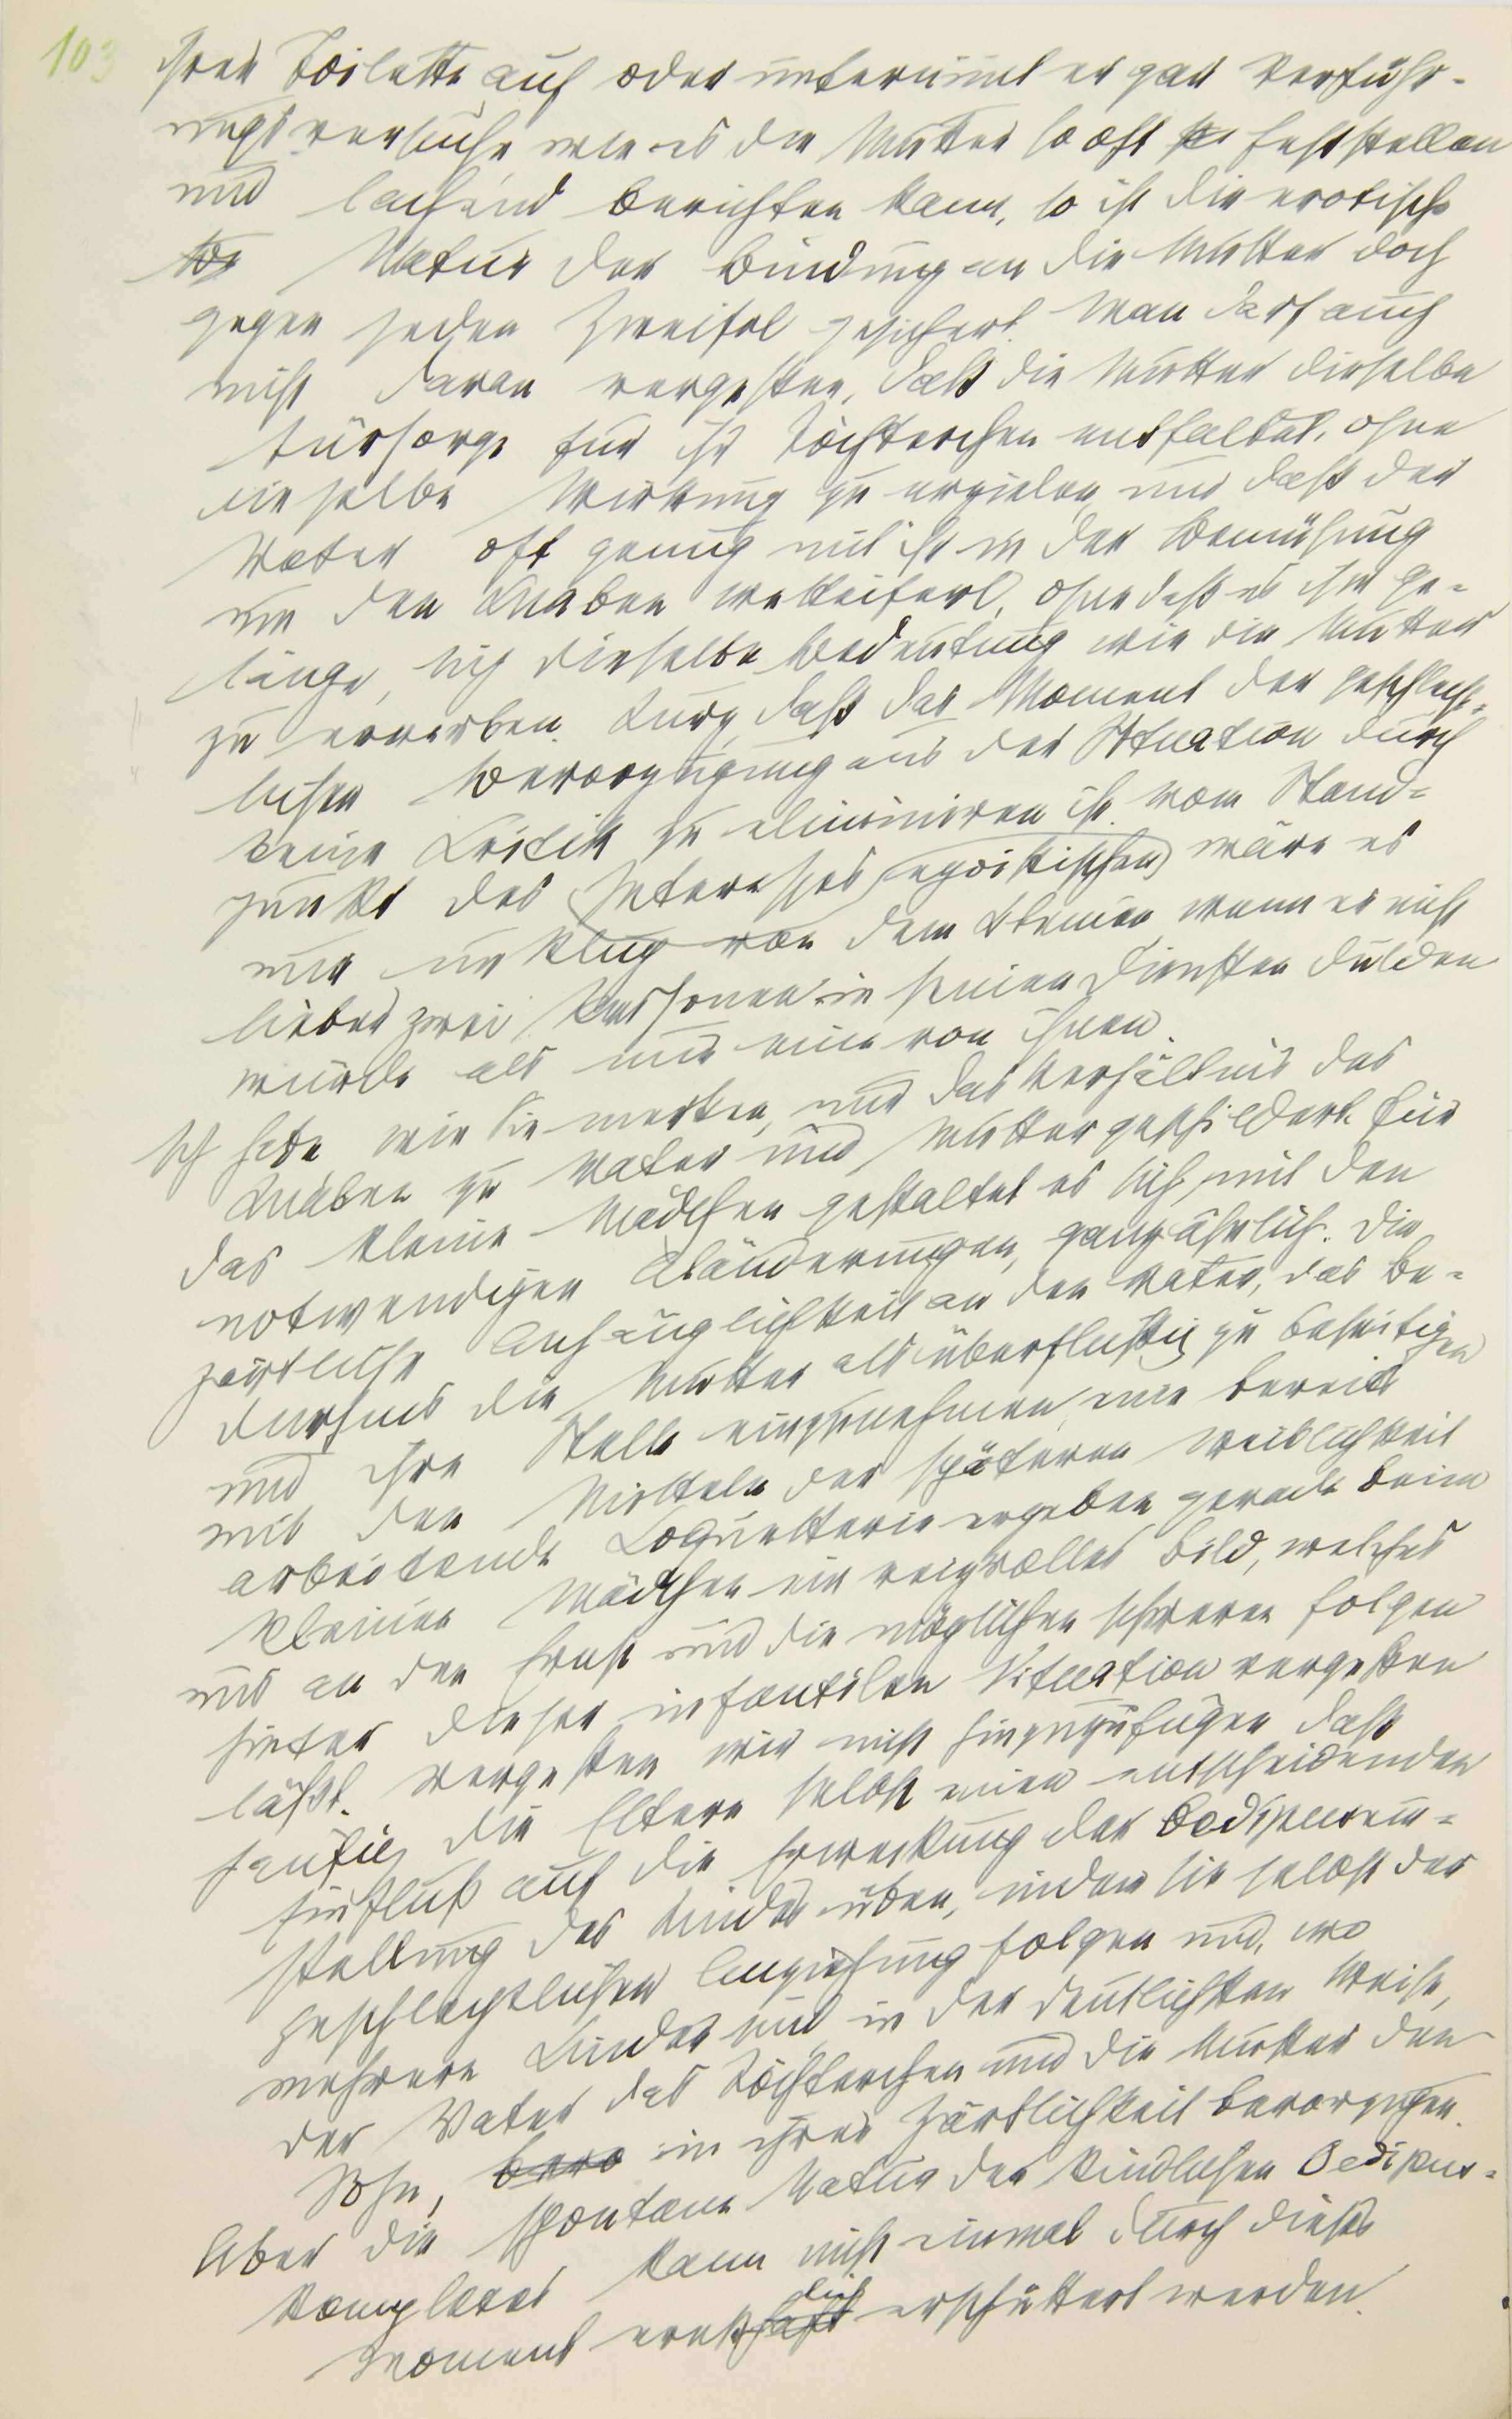 103
ihrer Toilette auf oder unternimmt er gar Verführ-
ungsversuche, wie es die Mutter so oft feststellen
und lachend berichten kann, so ist die erotische
Natur der Bindung an die Mutter doch
gegen jeden Zweifel gesichert. Man darf auch
nicht daran vergessen, daß die Mutter dieselbe
Fürsorge für ihr Töchterchen entfaltet, ohne
dieselbe Wirkung zu erzielen, und daß der
Vater oft genug mit ihr in der Bemühung
um den Knaben wetteifert, ohne daß es ihm ge-
länge, sich dieselbe Bedeutung wie die Mutter
zu erwerben. Kurz, daß das Moment der geschlecht-
lichen Bevorzugung aus der Situation durch
keine Kritik zu eliminiren ist. Vom Stand-
punkt des Interesses egoistischen wäre es
nur unklug von dem Kleinen, wenn er nicht
lieber zwei Personen in seinen Diensten dulden
würde als nur eine von ihnen.
Ich habe, wie Sie merken, nur das Verhältnis des
Knaben zu Vater und Mutter geschildert. Für
das kleine Mädchen gestaltet es sich, mit den
notwendigen Abänderungen, ganz ähnlich. Die
zärtliche Anhänglichkeit an den Vater, das Be-
dürfnis die Mutter als überflüssig zu beseitigen
und ihre Stelle einzunehmen, eine bereits
mit den Mitteln der späteren Weiblichkeit
arbeitende Koquetterie ergeben gerade beim
kleinen Mädchen ein reizvolles Bild, welches
uns an den Ernst und die möglichen schweren Folgen
hinter dieser infantilen Situation vergessen
läßt. Vergessen wir nicht hinzuzufügen, daß
häufig die Eltern selbst einen entscheidenden
Einfluß auf die Erweckung der Oedipusein-
stellung des Kindes üben, indem sie selbst der
geschlechtlichen Anziehung folgen und, wo
mehrere Kinder sind, in der deutlichsten Weise,
der Vater das Töchterchen und die Mutter den
Sohn, bevo in ihrer Zärtlichkeit bevorzugen.
Aber die spontane Natur des kindlichen Oedipus-
komplexes kann nicht einmal durch dieses
lich
Moment ernsthaft erschüttert werden.